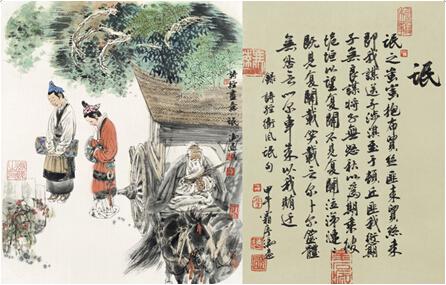 氓
氓之蚩蚩抱布貿絲匪来貿絲来
即我謀送子涉淇至于頓丘匪我愆期
子無良媒將子無怒秋以為期乘彼
垝垣以望复關不見复關泣涕漣漣
既見复關載笑載言尔卜尔筮體
無咎言以尔車来以我賄遷
詩經衛風氓句
甲午
詩經畫意 氓